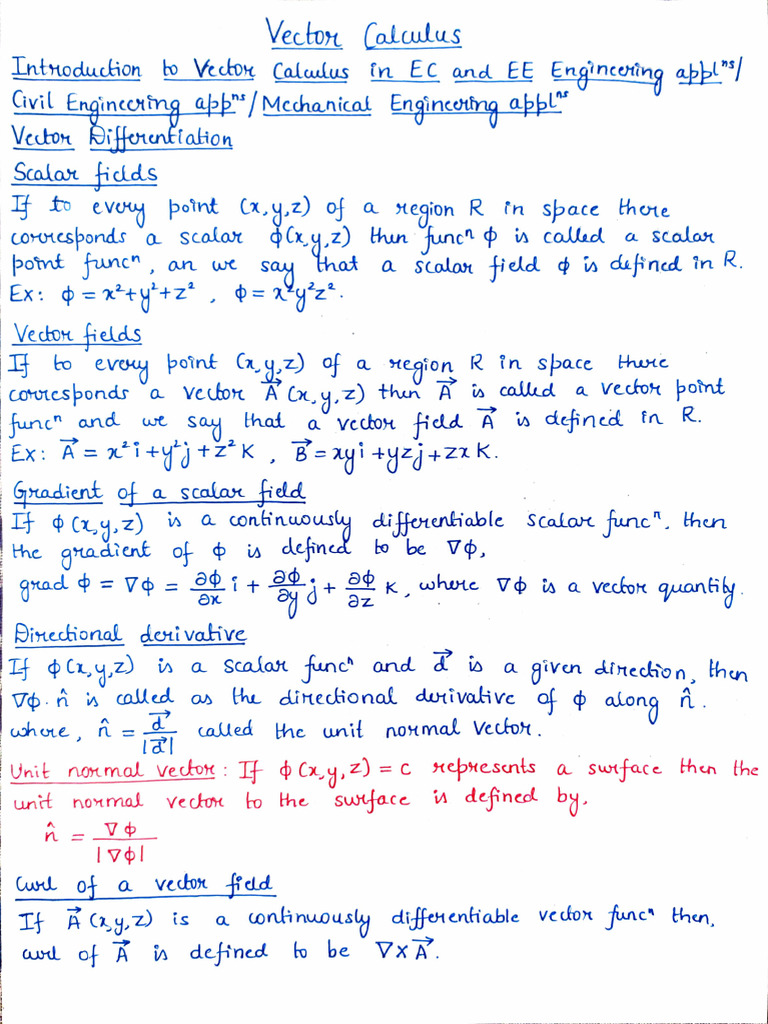 Vector Calculus
Introduction to Vector Calculus in EC and EE Engineering applⁿˢ/
Civil Engineering appⁿˢ/Mechanical Engineering applⁿˢ
Vector Differentiation
Scalar fields
If to every point (x,y,z) of a region R in space there
corresponds a scalar ϕ(x,y,z) then funcⁿ ϕ is called a scalar
point funcⁿ, an we say that a scalar field ϕ is defined in R.
Ex: ϕ = x²+y²+z² , ϕ = x²y²z².
Vector fields
If to every point (x,y,z) of a region R in space there
corresponds a vector A⃗ (x,y,z) then A⃗ is called a vector point
funcⁿ and we say that a vector field A⃗ is defined in R.
Ex: A⃗ = x²i+y²j+z²K , B⃗ = xyi+yzj+zxK.
Gradient of a scalar field
If ϕ(x,y,z) is a continuously differentiable scalar funcⁿ, then
the gradient of ϕ is defined to be ∇ϕ,
grad ϕ = ∇ϕ = ∂ϕ/∂x i + ∂ϕ/∂y j + ∂ϕ/∂z K, where ∇ϕ is a vector quantity.
Directional derivative
If ϕ(x,y,z) is a scalar funcⁿ and d⃗ is a given direction, then
∇ϕ·n̂ is called as the directional derivative of ϕ along n̂.
where, n̂ = d⃗/|d⃗| called the unit normal vector.
Unit normal vector: If ϕ(x,y,z) = c represents a surface then the
unit normal vector to the surface is defined by,
n̂ = ∇ϕ/|∇ϕ|
Curl of a vector field
If A⃗(x,y,z) is a continuously differentiable vector funcⁿ then,
curl of A⃗ is defined to be ∇×A⃗.